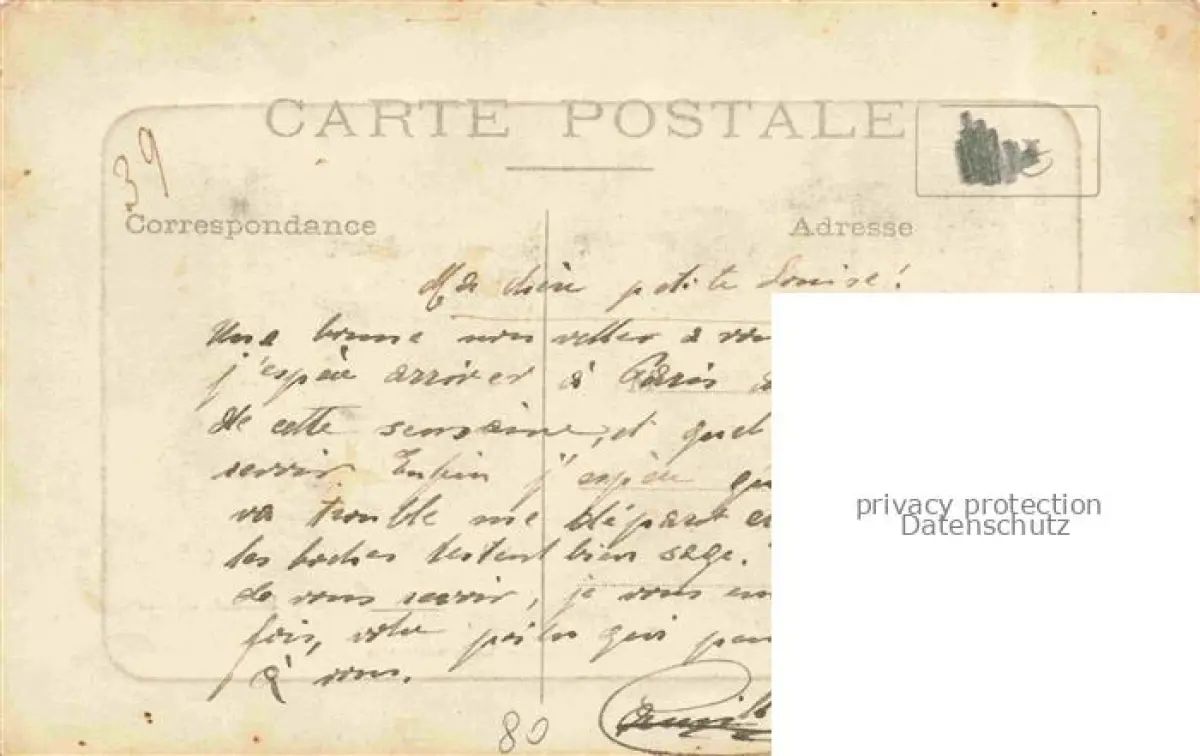 CARTE POSTALE
39
Correspondance
Adresse
Ma chère petite Louise!
Une bonne nouvelles à
j'espère arriver à Paris
de cette semaine, et quel
revoir Enfin j'espère
va trouble me départ
les boches restent bien sage.
de vous revoir, je vous
fois, votre poilu qui
à vous.
80
privacy protection
Datenschutz